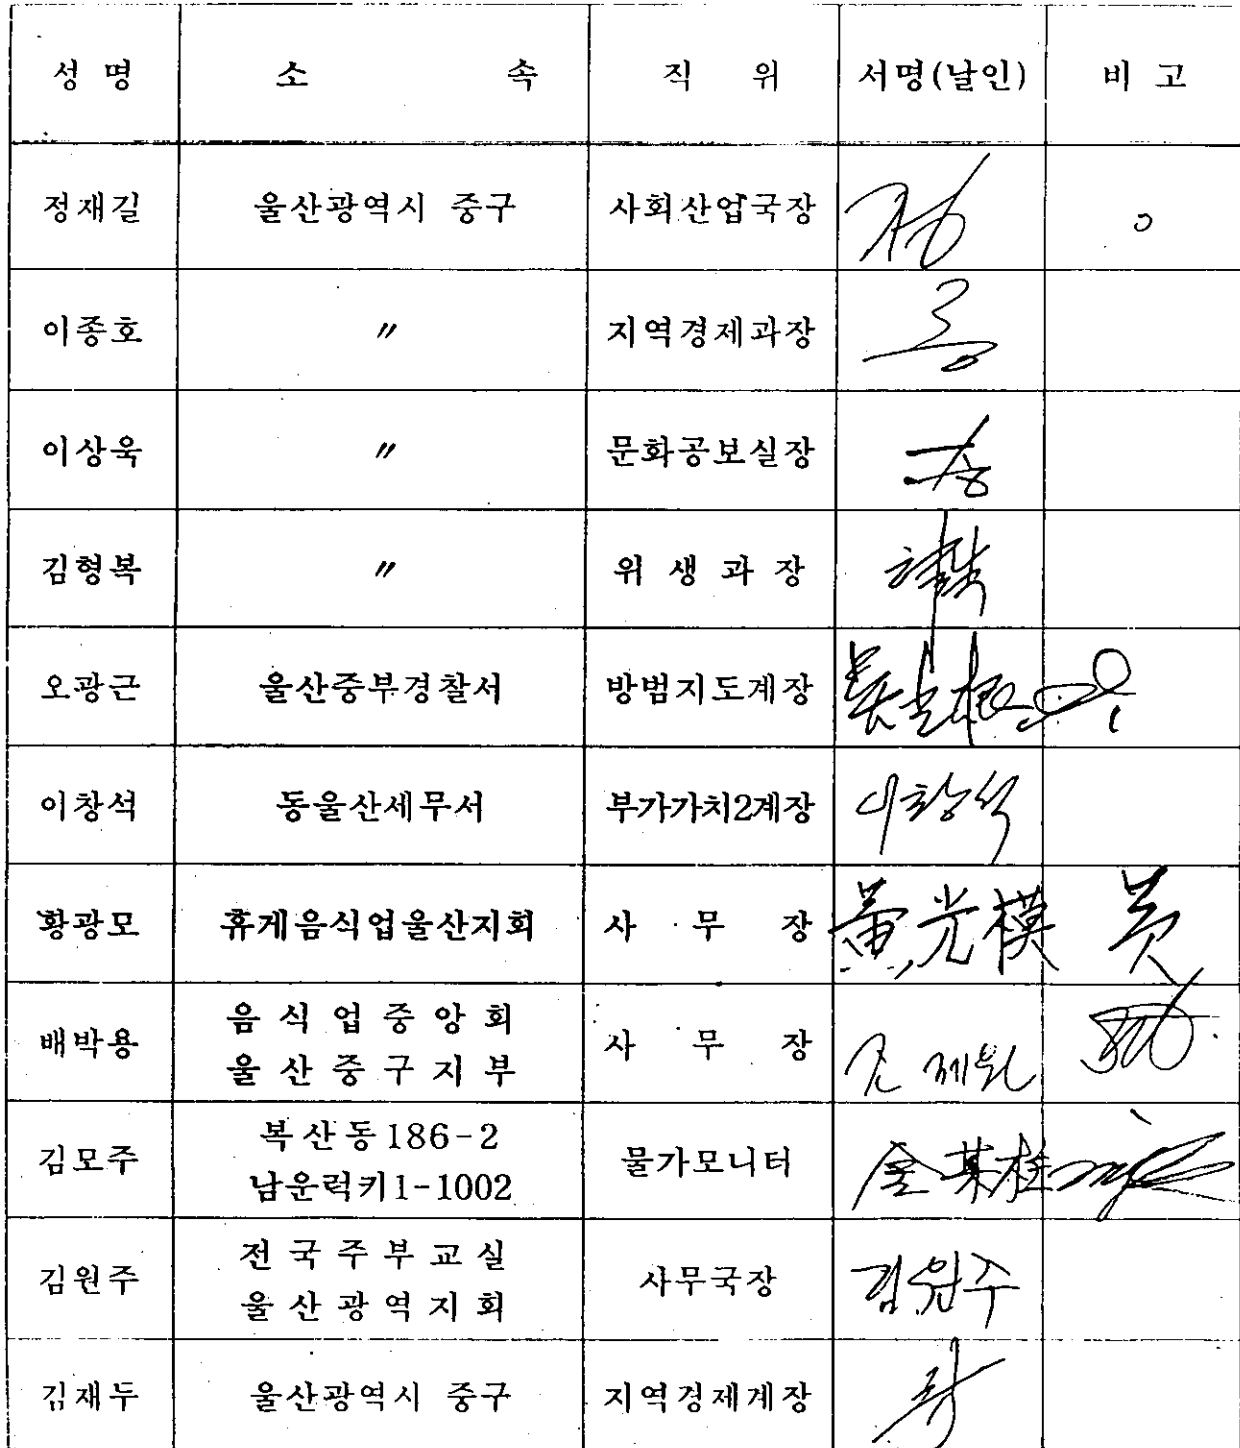 성 명 소 속 직 위 서명(날인) 비 고
정재길 울산광역시 중구 사회산업국장
이종호 〃 지역경제과장
이상욱 〃 문화공보실장
김형복 〃 위 생 과 장
오광근 울산중부경찰서 방범지도계장
이창석 동울산세무서 부가가치2계장 이창석
황광모 휴게음식업울산지회 사 무 장 黃光模
배박용 음 식 업 중 앙 회 사 무 장
울 산 중 구 지 부
김모주 복산동186-2 물가모니터 金某柱
남운럭키1-1002
김원주 전 국 주 부 교 실 사무국장 김원주
울 산 광 역 지 회
김재두 울산광역시 중구 지역경제계장